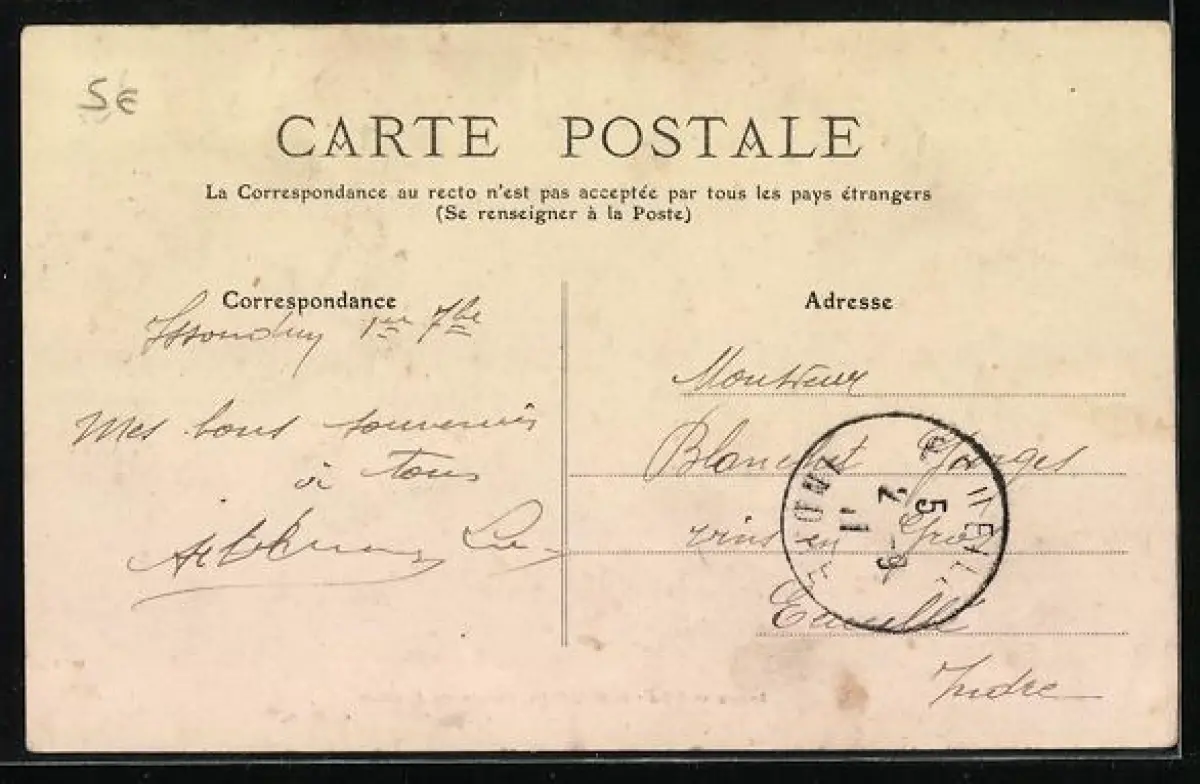 5€
CARTE POSTALE
La Correspondance au recto n'est pas acceptée par tous les pays étrangers
(Se renseigner à la Poste)
Correspondance
Issoudun 1er 7bre
Mes bons souvenirs
à tous
Adresse
Monsieur
Blanchet Georges
vins en Gros
Ecueillé
Indre
INDRE
5
2 -9
11